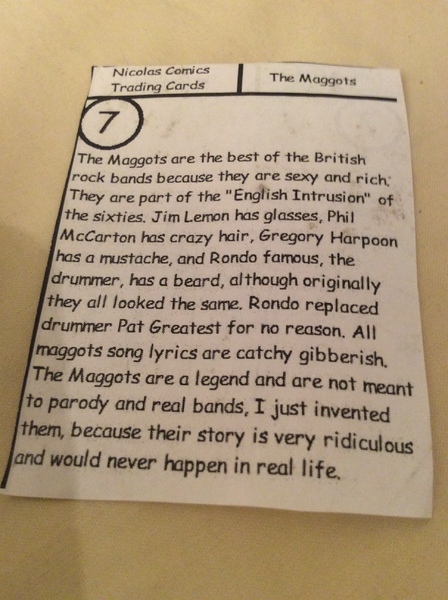 Nicolas Comics
Trading Cards
The Maggots
7
The Maggots are the best of the British
rock bands because they are sexy and rich.
They are part of the "English Intrusion" of
the sixties. Jim Lemon has glasses, Phil
McCarton has crazy hair, Gregory Harpoon
has a mustache, and Rondo famous, the
drummer, has a beard, although originally
they all looked the same. Rondo replaced
drummer Pat Greatest for no reason. All
maggots song lyrics are catchy gibberish.
The Maggots are a legend and are not meant
to parody and real bands, I just invented
them, because their story is very ridiculous
and would never happen in real life.